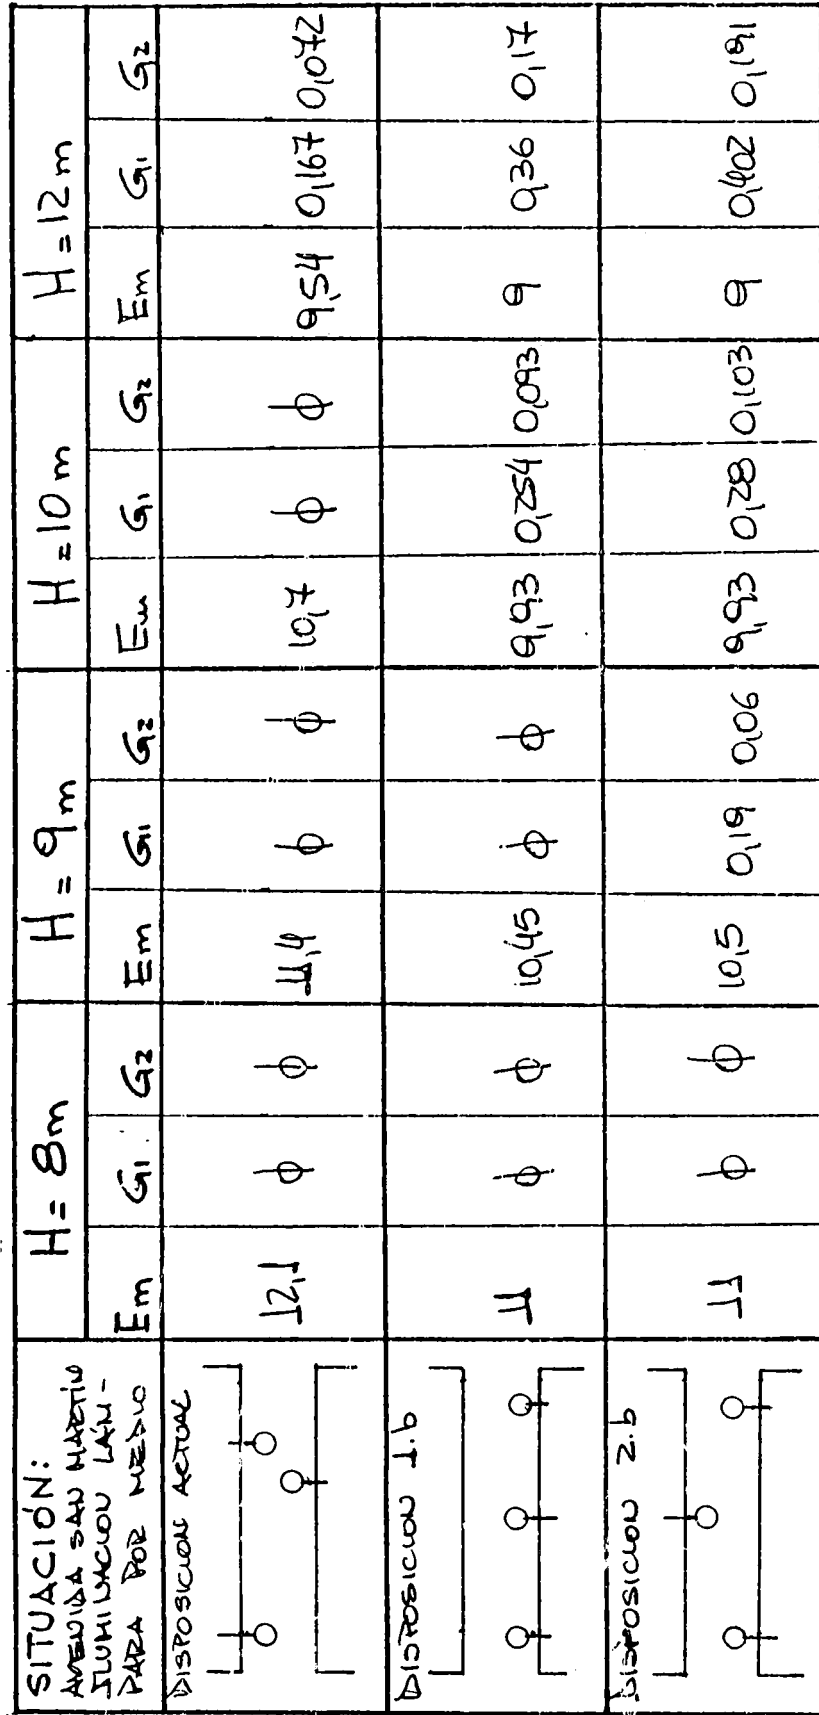 SITUACIÓN:
AVENIDA SAN MARTIN
ILUMINACION LÁM-
PARA POR MEDIO
H = 8m H = 9m H = 10m H = 12m
Em G1 G2 Em G1 G2 Em G1 G2 Em G1 G2
DISPOSICION ACTUAL
12,1 ϕ ϕ 11,4 ϕ ϕ 10,7 ϕ ϕ 9,54 0,167 0,072
DISPOSICION 1.b
11 ϕ ϕ 10,45 ϕ ϕ 9,93 0,254 0,093 9 0,36 0,17
DISPOSICION 2.b
11 ϕ ϕ 10,5 0,19 0,06 9,93 0,28 0,103 9 0,402 0,191